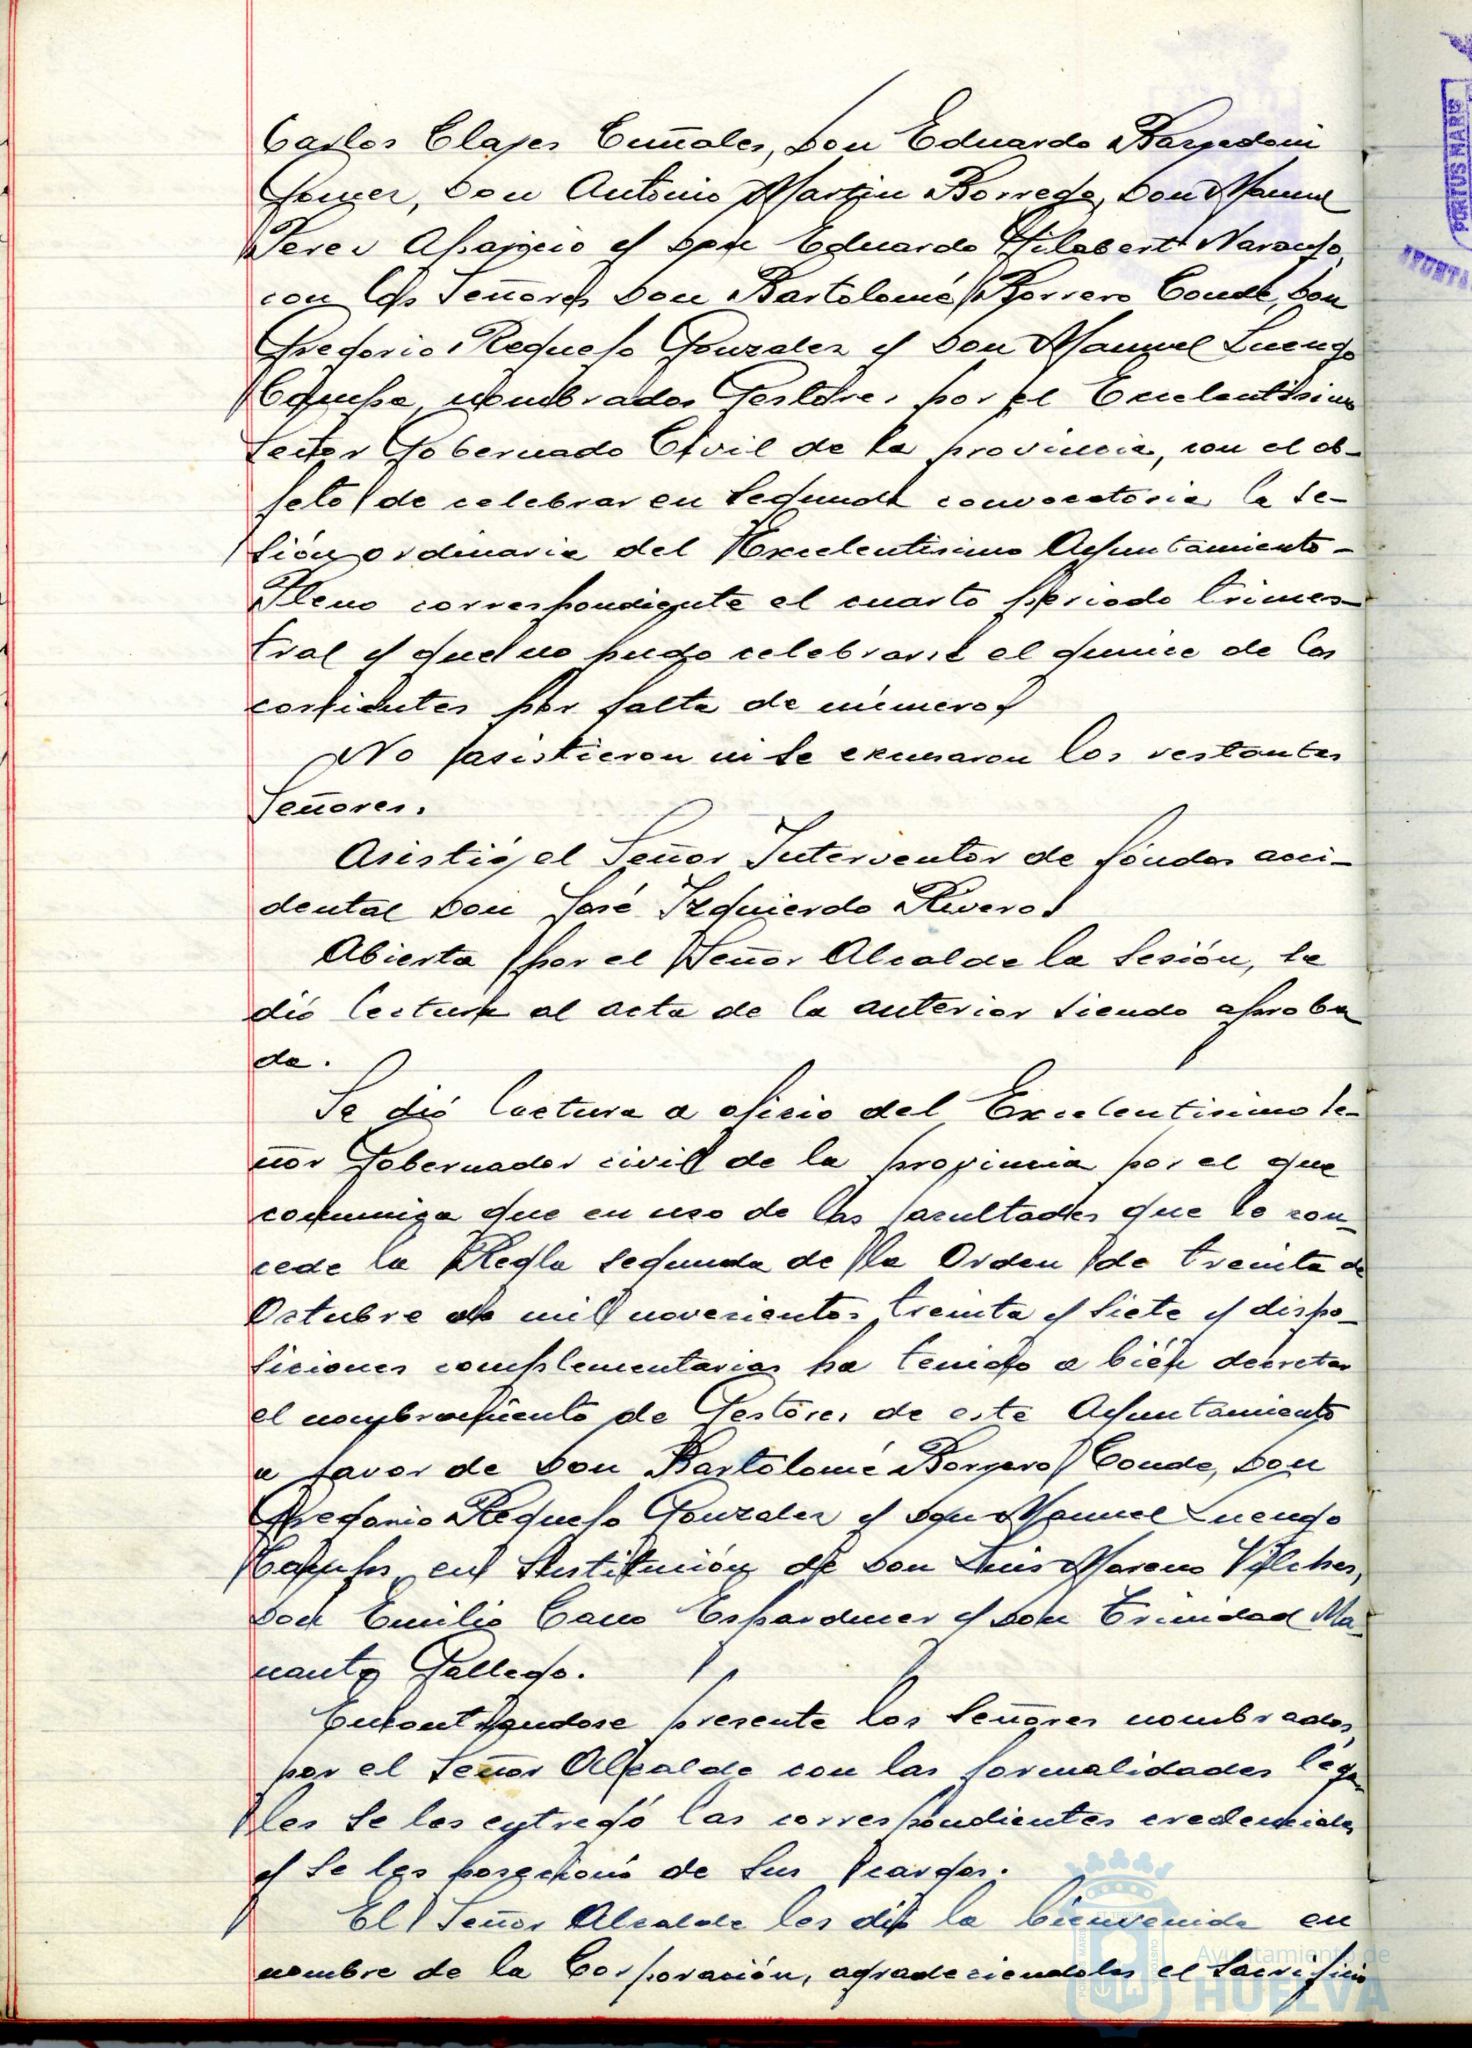 Carlos Clajes Cuñales, Don Eduardo Bargedoni
Gomez, Don Antonio Martin Borrego, Don Manuel
Perez Aparicio y Don Eduardo Gilabert Naranjo,
con los Señores Don Bartolomé Borrero Conde, Don
Gregorio Requejo Gonzalez y Don Manuel Luengo
Campa, nombrados Gestores por el Excelentisimo
Señor Gobernado Civil de la provincia, con el ob-
jeto de celebrar en segunda convocatoria la se-
sión ordinaria del Excelentisimo Ayuntamiento-
Pleno correspondiente el cuarto periodo trimes-
tral y que no pudo celebrarse el quince de los
corrientes por falta de número.
No asistieron ni se excusaron los restantes
Señores.
Asistió el Señor Interventor de fondos acci-
dental Don José Izquierdo Rivero.
Abierta por el Señor Alcalde la Sesión, se
dió lectura al acta de la anterior siendo aproba
da.
Se dió lectura a oficio del Excelentisimo Se-
ñor Gobernador civil de la provincia por el que
comunica que en uso de las facultades que le con-
cede la Regla segunda de la Orden de treinta de
Octubre de mil novecientos treinta y siete y dispo-
siciones complementarias ha tenido a bién decretar
el nombramiento de Gestores de este Ayuntamiento
a favor de Don Bartolomé Borrero Conde, Don
Gregorio Requejo Gonzalez y Don Manuel Luengo
en Sustitución de Don Luis Moreno Vilches,
Don Emilio Cano Esparducer y Don Trinidad Ma-
nanto Gallego.
Encontrandose presente los Señores nombrados,
por el Señor Alcalde con las formalidades lega
les se les entregó las correspondientes credenciales
y se les posecionó de sus cargos.
El Señor Alcalde les dió la bienvenida en
nombre de la Corporación, agradeciendoles el sacrificio
PORTUS MARIS
AYUNTA
Ayuntamiento de
HUELVA